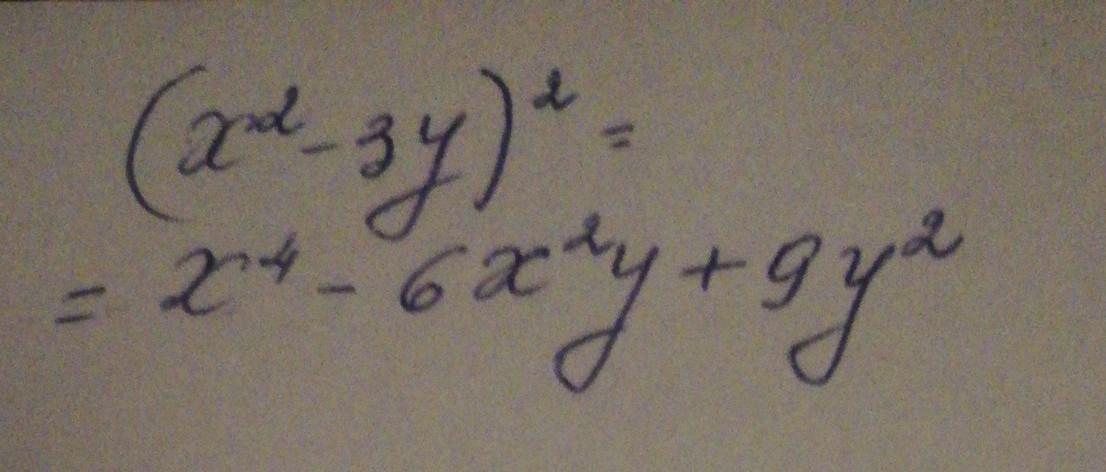 (x² - 3y)² =
= x⁴ - 6x²y + 9y²